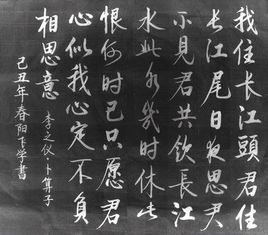 我住长江頭君住
长江尾日夜思君
不見君共饮長江
水此水幾时休此
恨何时已只愿君
心似我心定不負
相思意
李之仪·卜算子
己丑年春阳学書